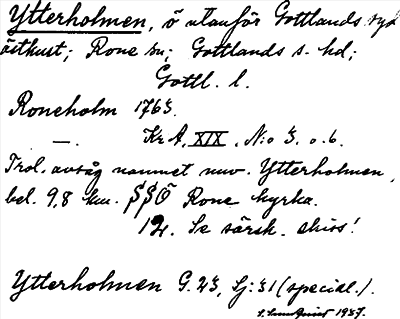 Ytterholmen, ö utanför Gottlands syd
östkust; Rone sn; Gottlands s. hd;
Gottl. l.
Roneholm 1763.
—. Kr A, XIX, N:o 3. o. 6.
Trol. avsåg namnet nuv. Ytterholmen,
bel. 9,8 km. SSÖ Rone kyrka.
Se särsk. skiss!
Ytterholmen G. 23, Lj: 31 (special.).
1937.